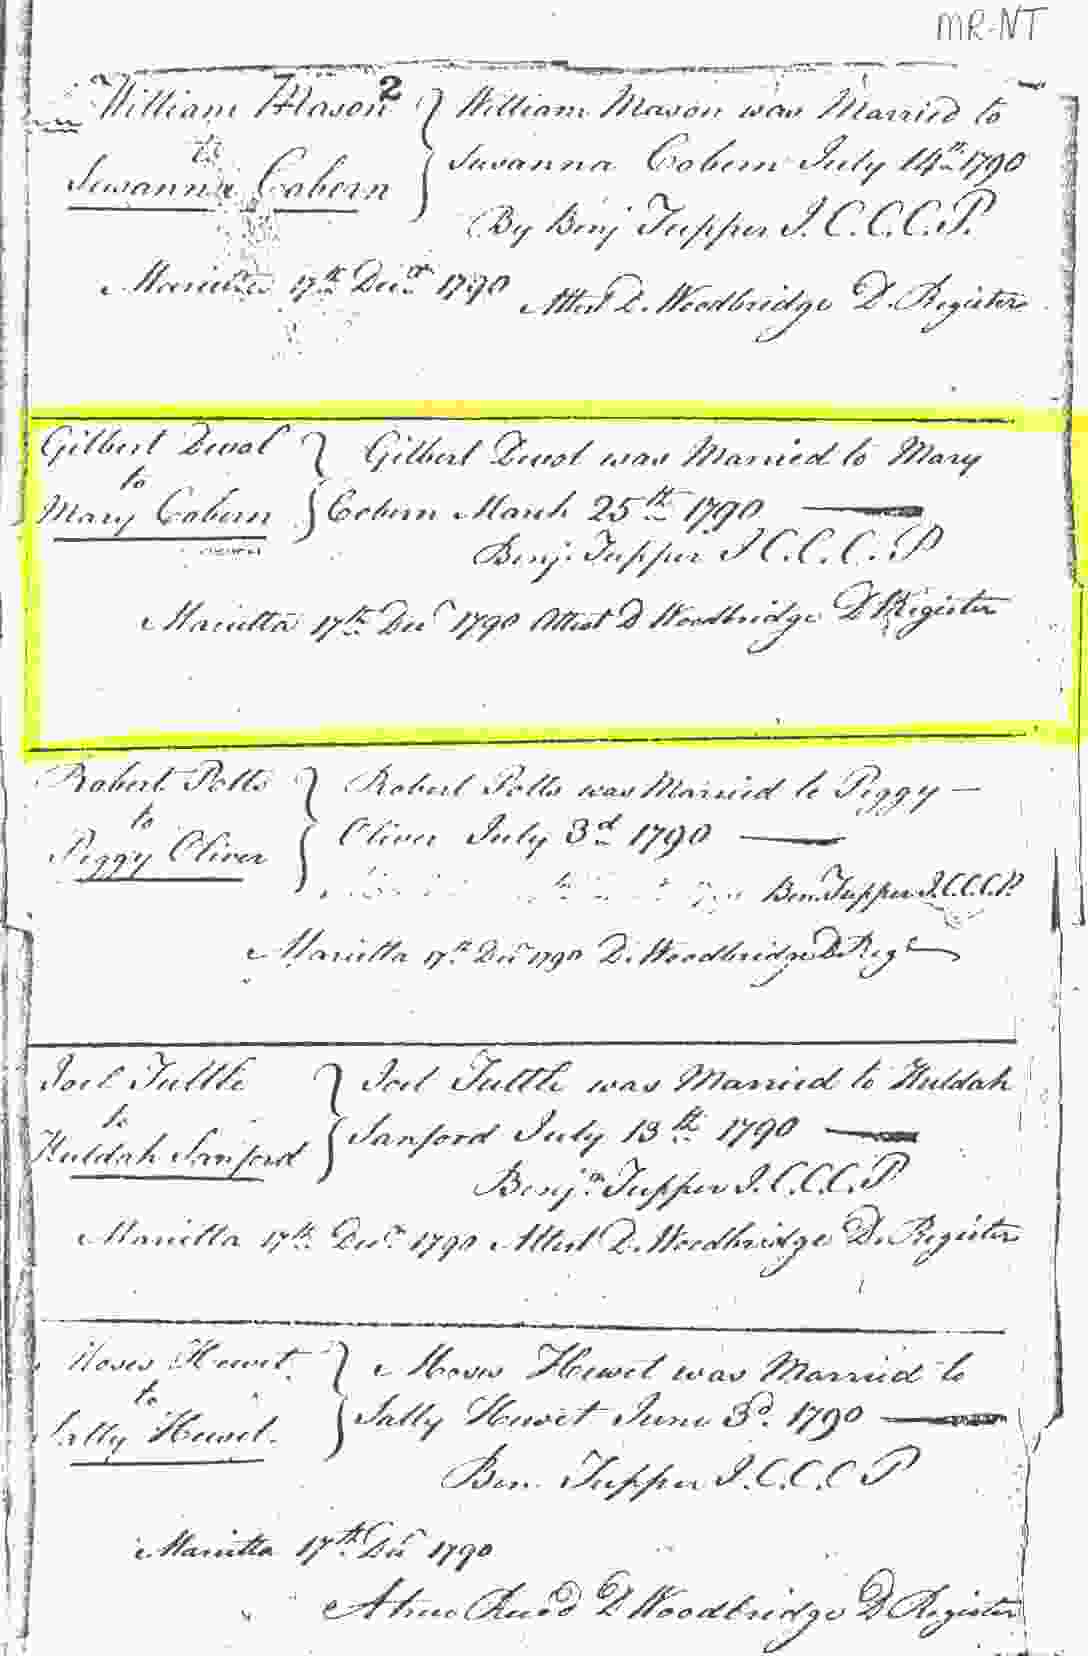 MR-NT
2
William Mason
to
Susanna Cobern
William Mason was Married to
Susanna Cobern July 14th 1790
By Benj Tupper J.C.C.C.P.
Marietta 17th Decr 1790
Attest D. Woodbridge D. Register
Gilbert Devol
to
Mary Cobern
Gilbert Devol was Married to Mary
Cobern March 25th 1790
Benj. Tupper J C.C.C.P
Marietta 17th Decr 1790 Attest D Woodbridge D Register
Robert Potts
to
Peggy Oliver
Robert Potts was Married to Peggy
Oliver July 3d 1790
Ben. Tupper J.C.C.C.P.
Marietta 17th Decr 1790 D. Woodbridge D. Regr
Joel Tuttle
to
Huldah Sanford
Joel Tuttle was Married to Huldah
Sanford July 13th 1790
Benjn Tupper J.C.C.C.P
Marietta 17th Decr 1790 Attest D. Woodbridge D. Register
Moses Hewet
to
Sally Hewet.
Moses Hewet was Married to
Sally Hewet June 3d. 1790
Ben. Tupper J.C.C.C P
Marietta 17th Decr 1790
D Woodbridge D Register